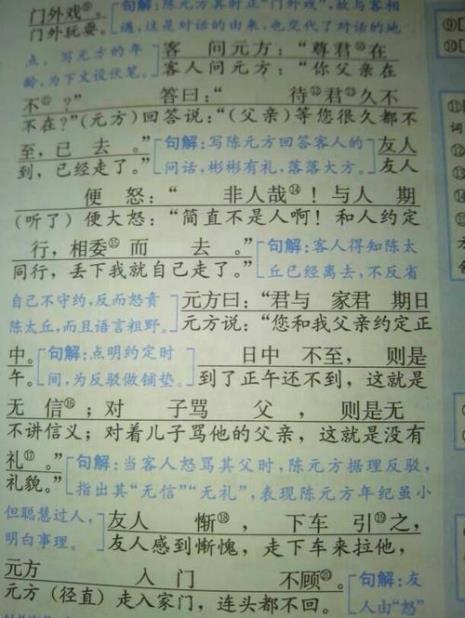 门外戏⑧。[句解:陈元方其时正“门外戏”,故与客相
门外玩耍。 遇,这是对话的由来,也交代了对话的地
点。写元方的年 客 问元方:“尊君⑪在
龄,为下文设伏笔。] 客人问元方:“你父亲在
不⑫?” 答曰:“ 待⑬君久不
不在?”(元方)回答说:“(父亲)等您很久都不
至,已去。”[句解:写陈元方回答客人的 友人
到,已经走了。” 问话,彬彬有礼,落落大方。] 友人
便 怒:“ 非人哉⑭!与人 期
(听了)便大怒:“简直不是人啊!和人约定
行,相委⑮而 去。”[句解:客人得知陈太
同行,丢下我就自己走了。” 丘已经离去,不反省
自己不守约,反而怒责 元方曰:“君与 家君 期日
陈太丘,而且语言粗野。] 元方说:“您和我父亲约定正
中。[句解:点明约定时 日中 不至, 则是
午。 间,为反驳做铺垫。] 到了正午还不到,这就是
无 信⑯;对 子骂 父 , 则是无
不讲信义;对着儿子骂他的父亲,这就是没有
礼⑰。”[句解:当客人怒骂其父时,陈元方据理反驳,
礼貌。” 指出其“无信”“无礼”,表现陈元方年纪虽小
但聪慧过人, 友人 惭⑱, 下车 引⑲之,
明白事理。] 友人感到惭愧,走下车来拉他,
元方 入 门 不顾⑳。[句解:友
元方(径直)走入家门,连头都不回。 人由“怒”